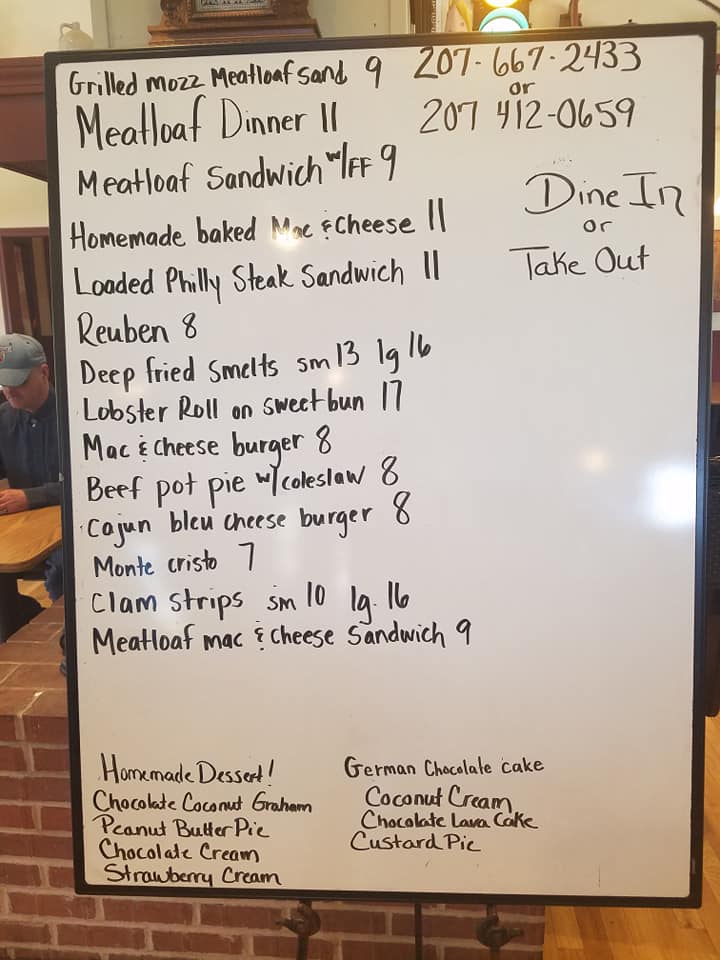 Grilled mozz Meatloaf Sand 9
207-667-2433
or
207 412-0659
Meatloaf Dinner 11
Meatloaf Sandwich w/FF 9
Dine In
or
Take Out
Homemade baked Mac & Cheese 11
Loaded Philly Steak Sandwich 11
Reuben 8
Deep fried Smelts sm 13 lg 16
Lobster Roll on sweet bun 17
Mac & cheese burger 8
Beef pot pie w/coleslaw 8
Cajun bleu cheese burger 8
Monte cristo 7
Clam Strips sm 10 lg. 16
Meatloaf mac & cheese Sandwich 9
Homemade Dessert!
Chocolate Coconut Graham
Peanut Butter Pie
Chocolate Cream
Strawberry Cream
German Chocolate cake
Coconut Cream
Chocolate Lava Cake
Custard Pie